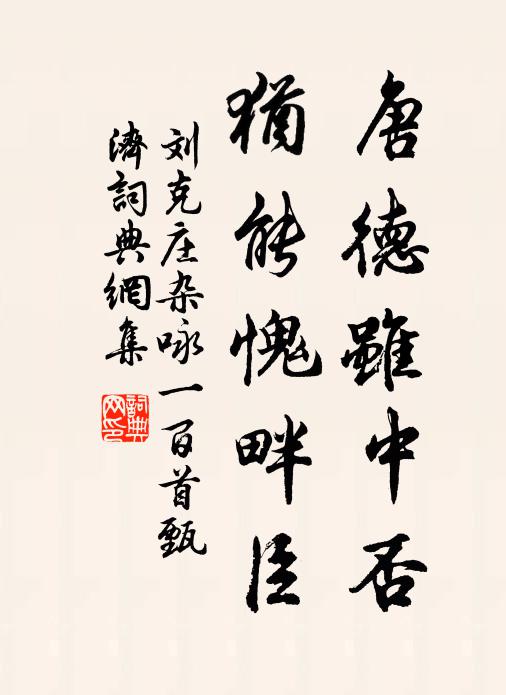 唐德雖中否
猶能愧畔臣
刘克庄杂咏一百首甄
濟詞典網集
詞典
网印